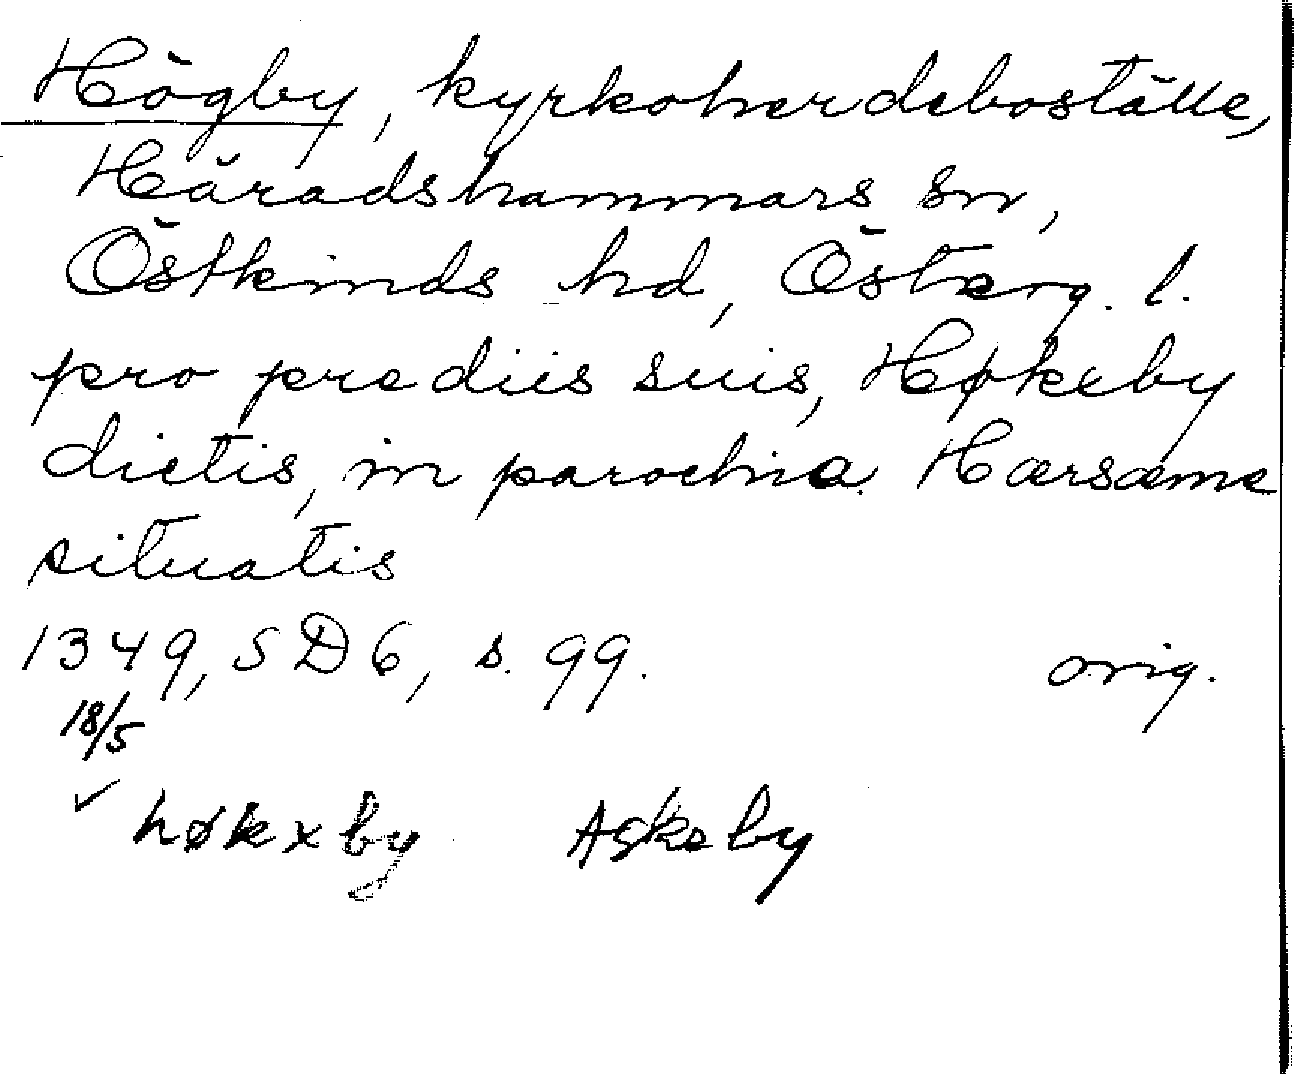 Högby, kyrkoherdeboställe,
Häradshammars sn,
Östkinds hd, Österg. l.
pro prediis suis, Høkeby
dictis, in parochia Hærsæme
situatis
1349, SD 6, s. 99. orig.
18/5
✓ høkxby Askeby